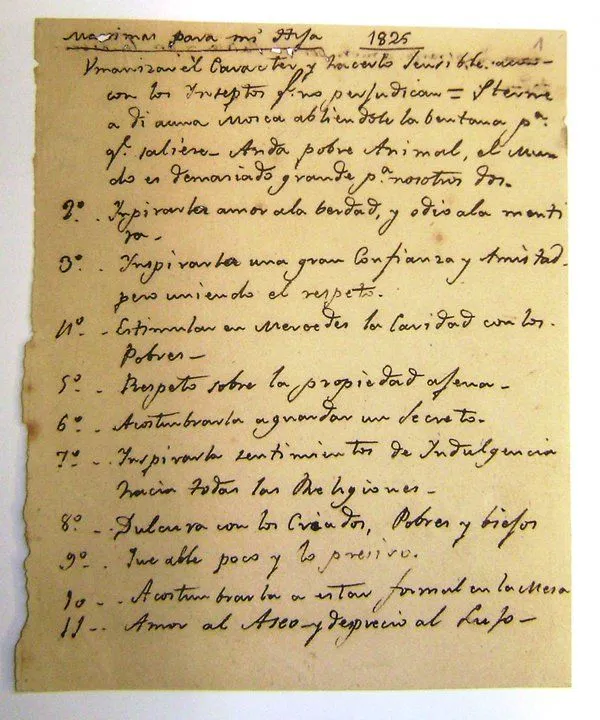 Maximas para mi Hija 1825 1
Umanizar el Caracter y hacerlo sensible aun
con los Inseptos q.e no perjudican = Sterne
a di auna Mosca abriendole la bentana p.a
q.e saliese - Anda pobre Animal, el Mun-
do es demasiado grande p.a nosotros dos.
2º - Inpirarla amor ala berdad, y odio ala menti
ra -
3º - Inspirarla una gran Confianza y Amistad
pero uniendo el respeto.
4º - Estimular en Mercedes la Caridad con los
Pobres -
5º - Respeto sobre la propiedad ajena -
6º - Acostumbrarla a guardar un Secreto.
7º - Inspirarla sentimientos de Indulgencia
hacia todas las Religiones -
8º - Dulcura con los Criados, Pobres y biejos
9º - Que able poco y lo presiso.
10 - Acostumbrarla a estar formal en la Mesa
11 - Amor al Aseo y desprecio al Lujo -